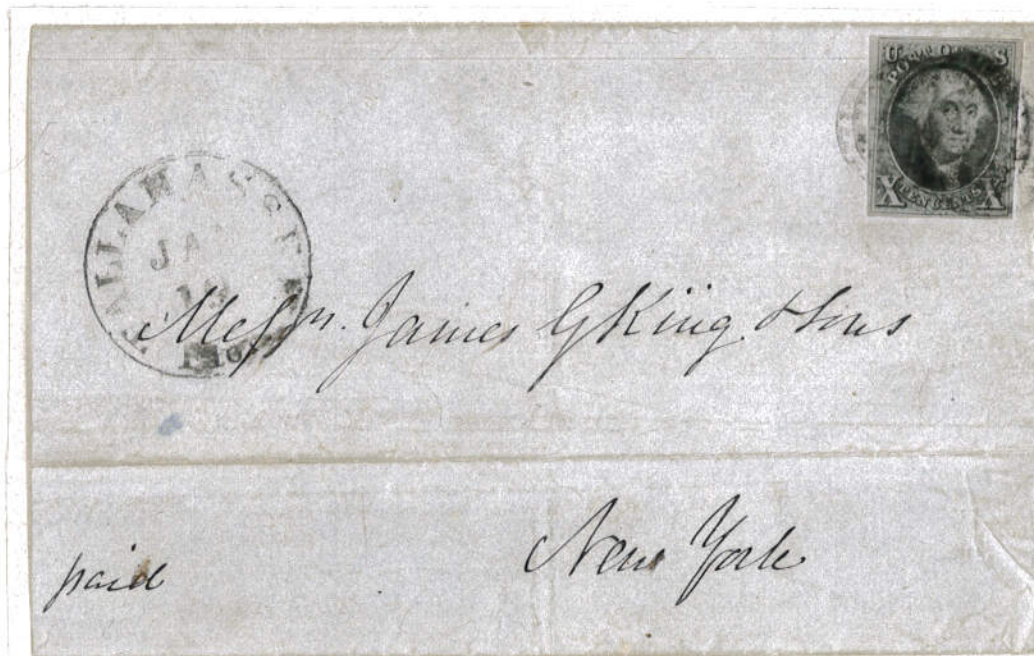 U S
POST OFFICE
X TEN CENTS X
TALLAHASSEE
JAN
Flor.
Messrs. James G King & Sons
New York
paid